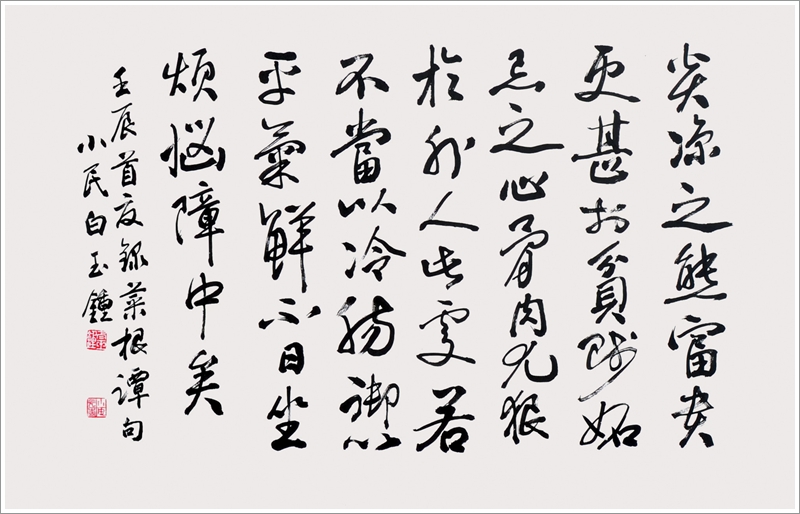 炎涼之態富貴
更甚於貧賤妬
忌之心骨肉尤狠
於外人此處若
不當以冷腸御以
平氣鮮不日坐
煩惱障中矣
壬辰首夏錄菜根譚句
小民白玉鐘